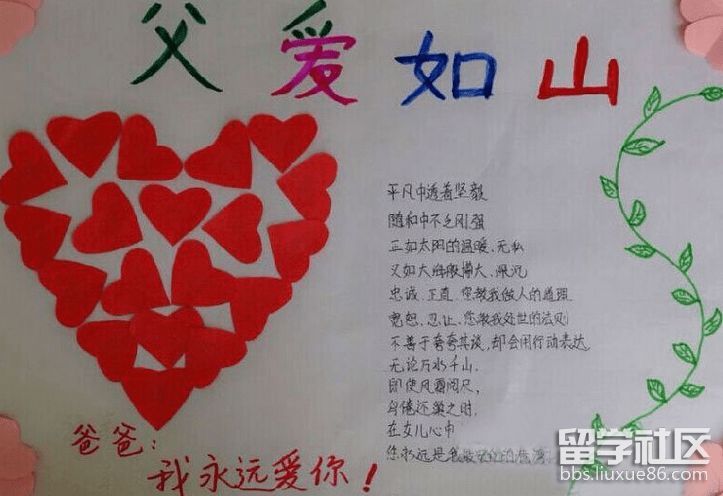 父爱如山
平凡中透着坚毅
随和中不乏刚强
正如太阳的温暖、无私
又如大海般博大、深沉
忠诚、正直、您教我做人的道理
宽恕、忍让、您教我处世的法则
不善于夸夸其谈，却会用行动表达
无论万水千山，
即使风霜
鸟倦还巢之时，
在女儿心中
您永远是我
爸爸：
我永远爱你！
留学社区
bbs.liuxue86.com